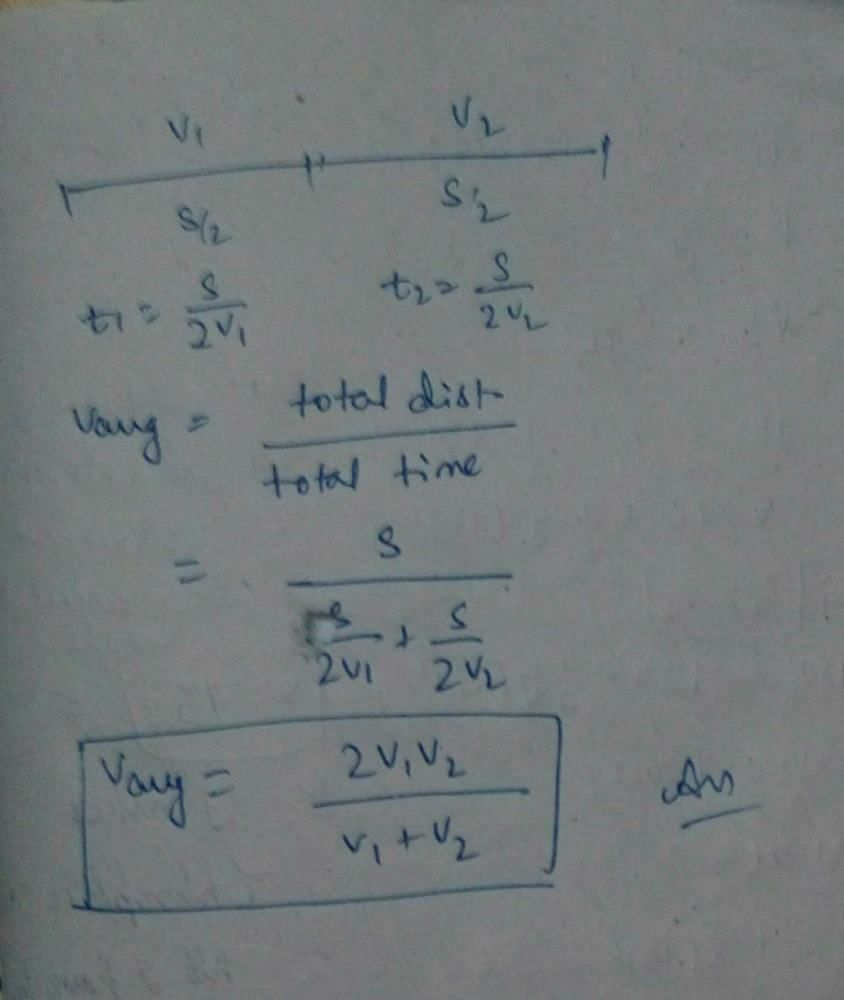 V1 V2
S/2 S/2
t1 = S/2V1 t2 = S/2V2
Vavg = total dist / total time
= S / (S/2V1 + S/2V2)
Vavg = 2V1V2 / (V1 + V2) Ans